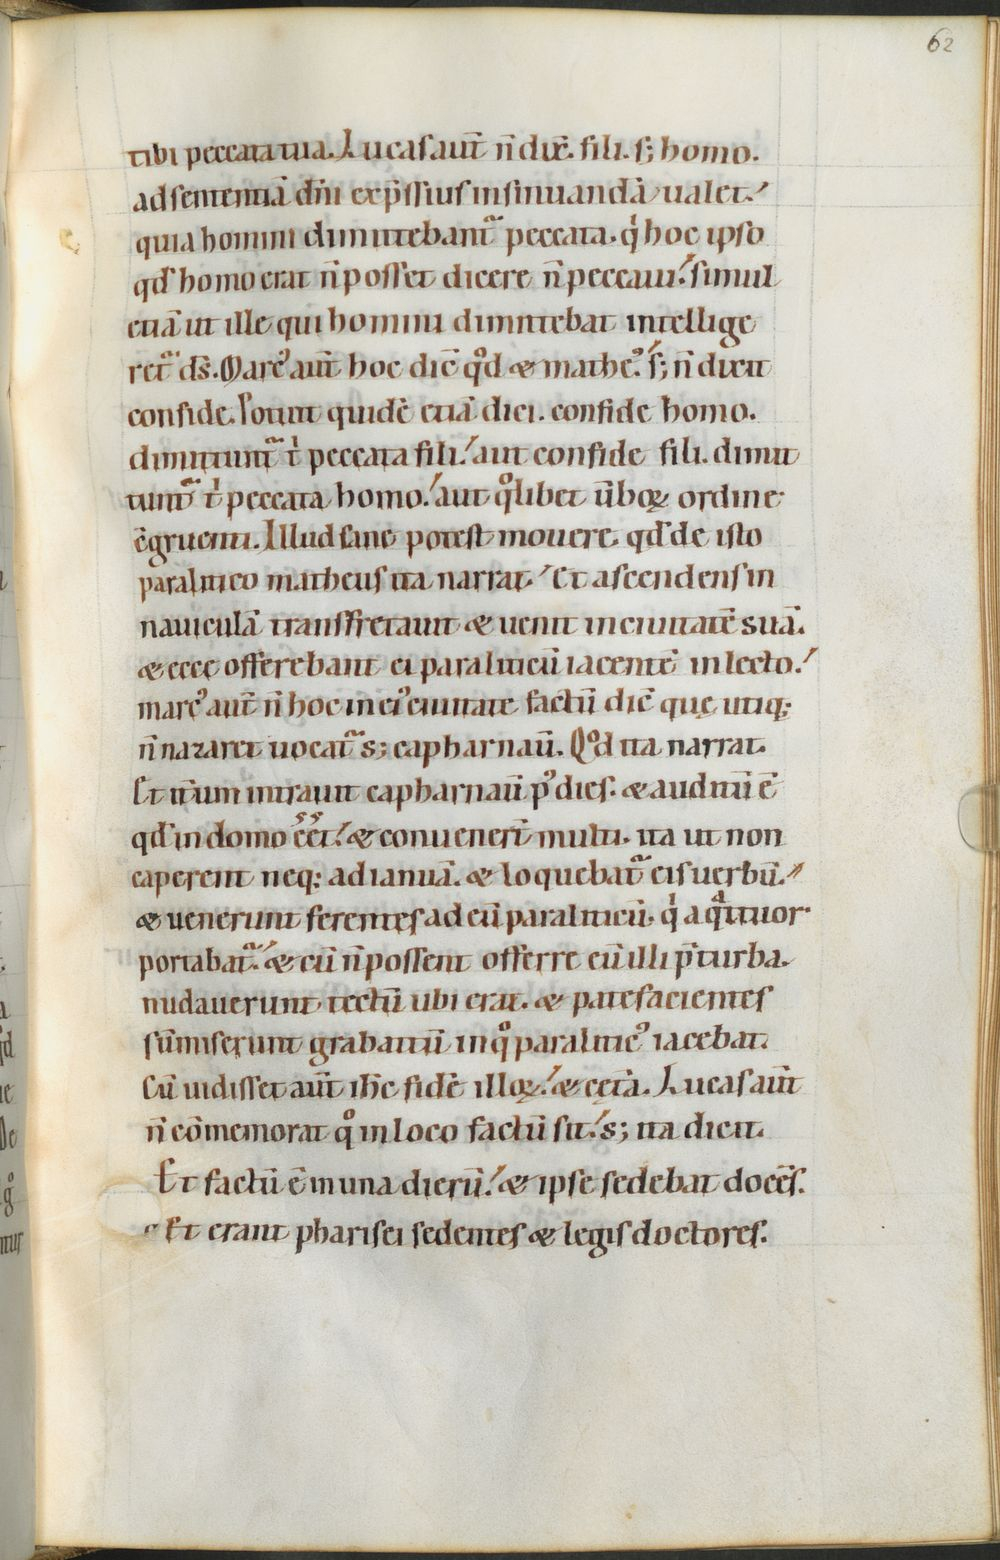 62
tibi peccata tua. Lucas aut̄ n̄ dix̄. fili. s; homo.
ad sententiā dn̄i exp̄ssius insinuandā ualet.
quia homini dimittebant᷑ peccata. q̇ hoc ipso
qd̄ homo erat n̄ posset dicere n̄ peccaui. simul
etiā ut ille qui homini dimittebat intellige
ret᷑ ds̄. Marc᷒ aut̄ hoc dic̄ qͦd & mathe᷒. s; n̄ dixit
confide. Potuit quidē etiā dici. confide homo.
dimittunt᷑ t' peccata fili. aut confide fili. dimit
tunt᷑ t' peccata homo. aut qͦlibet ūboꝝ ordine
c̄gruenti. Illud sane potest mouere. qd̄ de isto
paralitico matheus ita narrat. Et ascendens in
nauiculā transfretauit & uenit in ciuitatē suā.
& ecce offerebant ei paraliticū iacentē in lecto.
marc᷒ aut̄ n̄ hoc in ei᷒ ciuitate factū dic̄ quę utiq;
n̄ nazaret uocat᷑ s; capharnaū. Qͦd ita narrat.
Et it̄um intrauit capharnaū p᷒ dies. & auditū ē
qd̄ in domo eēt. & conuener̄t multi. ita ut non
caperent neq; ad ianuā. & loquebat᷑ eis uerbū.
& uenerunt ferentes ad eū paraliticū. q̇ a qͣttuor
portabat᷑. & cū n̄ possent offerre eū illi p̄ turba.
nudauerunt tectū ubi erat. & patefacientes
sūmiserunt grabattū in qͦ paralitic᷒ iacebat.
Cū uidisset aut̄ ih̄c fidē illoꝝ. & cęt̄a. Lucas aut̄
n̄ cōmemorat qͦ in loco factū sit. s; ita dicit.
Et factū ē in una dierū. & ipse sedebat docēs.
Et erant pharisei sedentes & legis doctores.